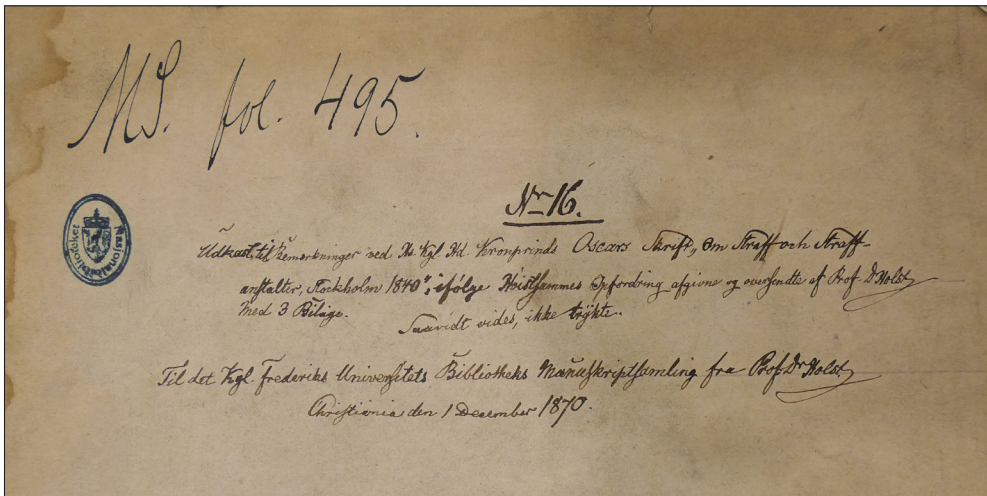 MS. fol. 495.
Nasjonalbiblioteket
Nr 16.
Udkast til Bemerkninger ved Hs. Kgl. Hd. Kronprinds Oscars Skrift, „Om Straff och Straff-
anstalter, Stockholm 1840“, ifølge Høistsammes Opfordring afgivne og oversendte af Prof. Dr Holst
Med 3 Bilage.
Saavidt vides, ikke trykte.
Til det Kgl. Frederiks Universitets Bibliotheks Manuskriptsamling fra Prof. Dr Holst
Christiania den 1 December 1870.